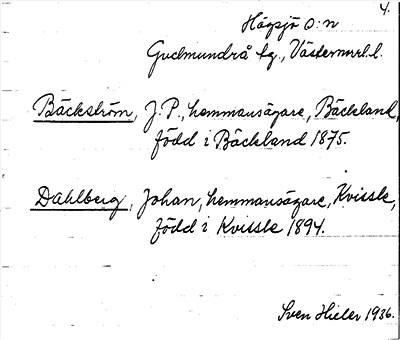 4.
Högsjö O:n
Gudmundrå tg., Västernorrl. l.
Bäckström, J. P., hemmansägare, Bäckland,
född i Bäckland 1875.
Dahlberg, Johan, hemmansägare, Kvissle,
född i Kvissle 1894.
Sven Hieler 1936.